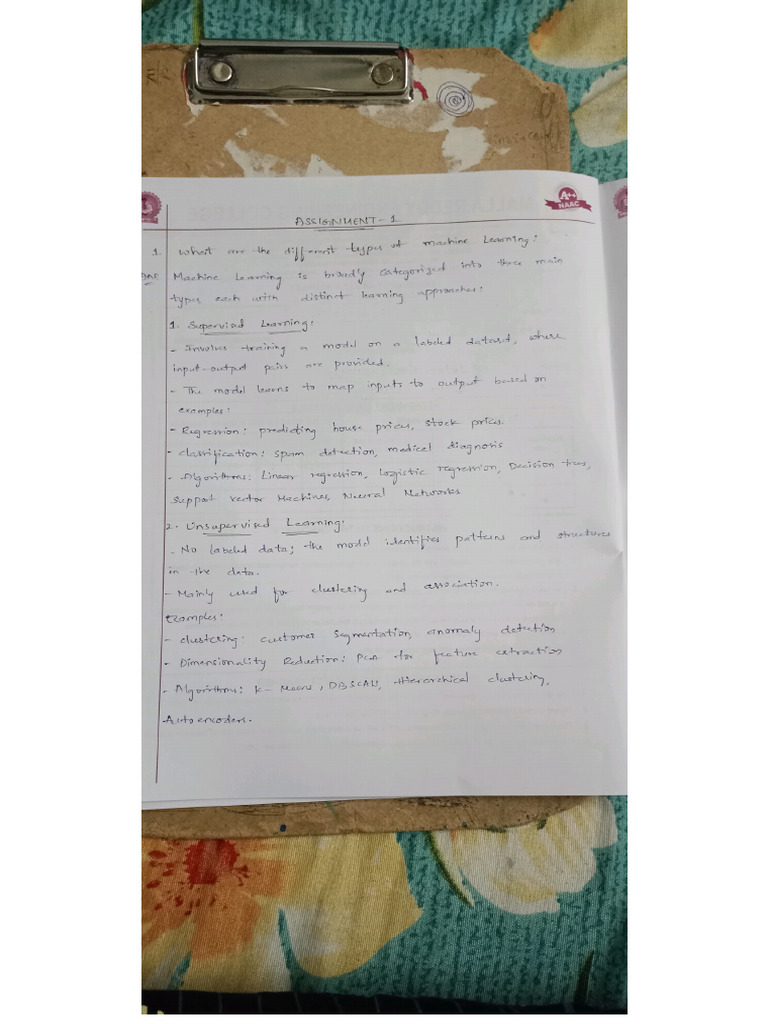 A++
NAAC
ASSIGNMENT - 1
1. What are the different types of machine Learning?
Ans Machine Learning is broadly categorized into three main
types each with distinct learning approaches:
1. Supervised Learning:
- Involves training a model on a labeled dataset, where
input-output pairs are provided.
- The model learns to map inputs to output based on
examples:
- Regression: predicting house prices, stock prices.
- classification: spam detection, medical diagnosis
- Algorithms: Linear regression, Logistic regression, Decision trees,
Support vector Machines, Neural Networks
2. Unsupervised Learning:
- No labeled data; the model identifies patterns and structures
in the data.
- Mainly used for clustering and association.
Examples:
- clustering: customer segmentation, anomaly detection
- Dimensionality Reduction: PCA for feature extraction
- Algorithms: K-Means, DBSCAN, Hierarchical clustering,
Autoencoders.